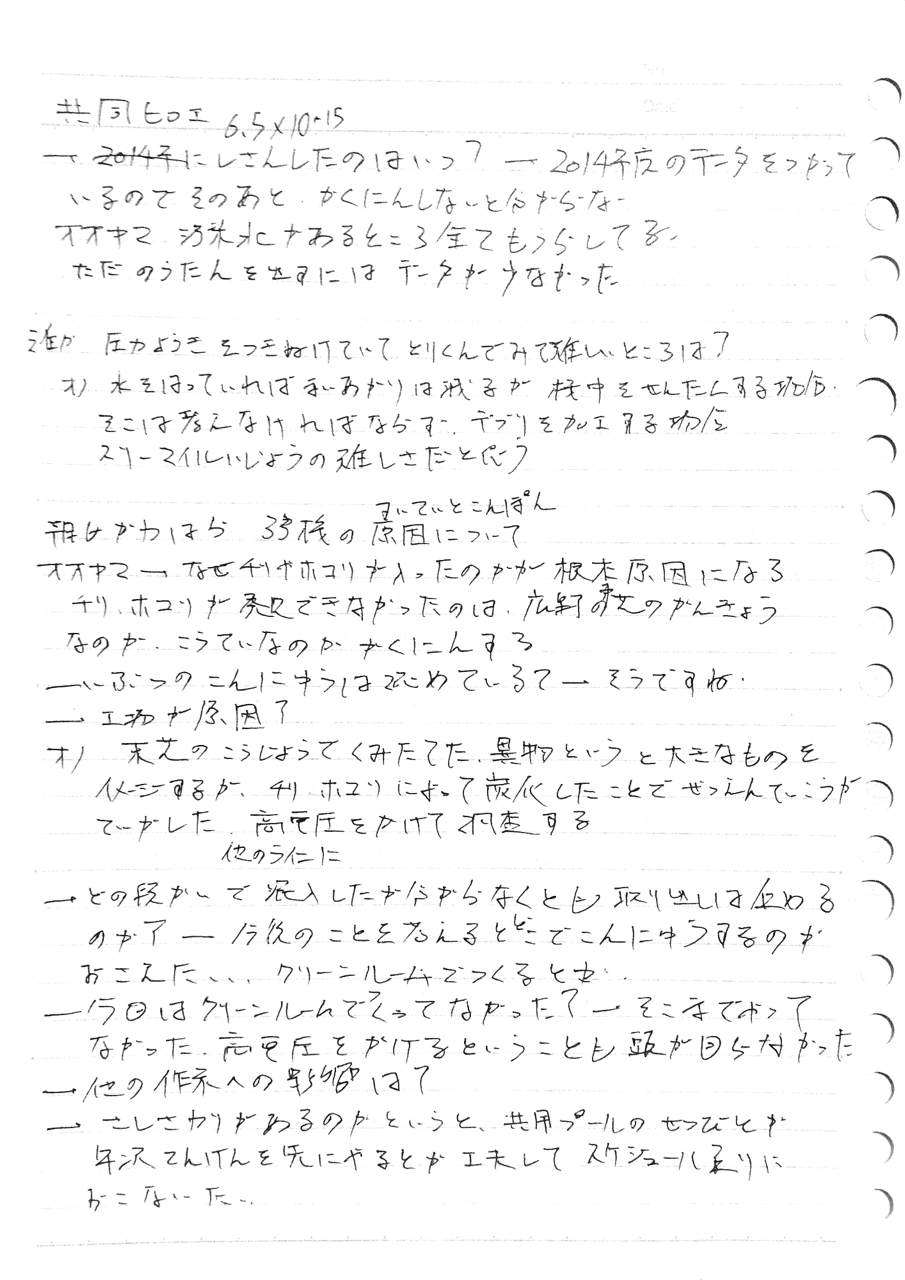 共同ヒロエ 6.5×10^15
→ 2014年にしさんしたのはいつ? → 2014年度のデータをつかって
いるのでそのあと、かくにんしないと分からない
オオヤマ 汚染水があるところ全てもうらしてる。
ただのうたんを出すにはデータが少なかった
誰か 圧力ようきをつきぬけていてとりくんでみて難しいところは?
オ) 水をはっていればまいあがりは減るが 検中をせんたくする場合。
そこは考えなければならず、デブリを加工する場合
スリーマイルいじょうの難しさだと思う
すいていとこんぽん
朝日かわはら 3号機の原因について
オオヤマ → なぜチリやホコリが入ったのかが根本原因になる
チリ、ホコリが発見できなかったのは、広野の
なのか、こうていなのか かくにんする
→ いぶつのこんにゅうは認めているで → そうですね。
→ 工場が原因?
オ) 東芝のこうじょうでくみたてた、異物というと大きなものを
イメージするが、チリ、ホコリによって炭化したことでぜつえんていこうが
ていかした、高電圧をかけて調査する
他のラインに
→ どの段かいで混入したか分からなくとも取り出しは止める
のか? → 今後のことを考えるとどこでこんにゅうするのか
おこえた... クリーンルームでつくるとか..
→ 今回はクリーンルームでつくってなかった? → そこまでやって
なかった、高電圧をかけるということも頭が回らなかった
→ 他の作業への影響は?
→ さしさわりがあるのかというと、共用プールのせつびとか
年次てんけんを先にやるとか工夫してスケジュール通りに
おこないたい..